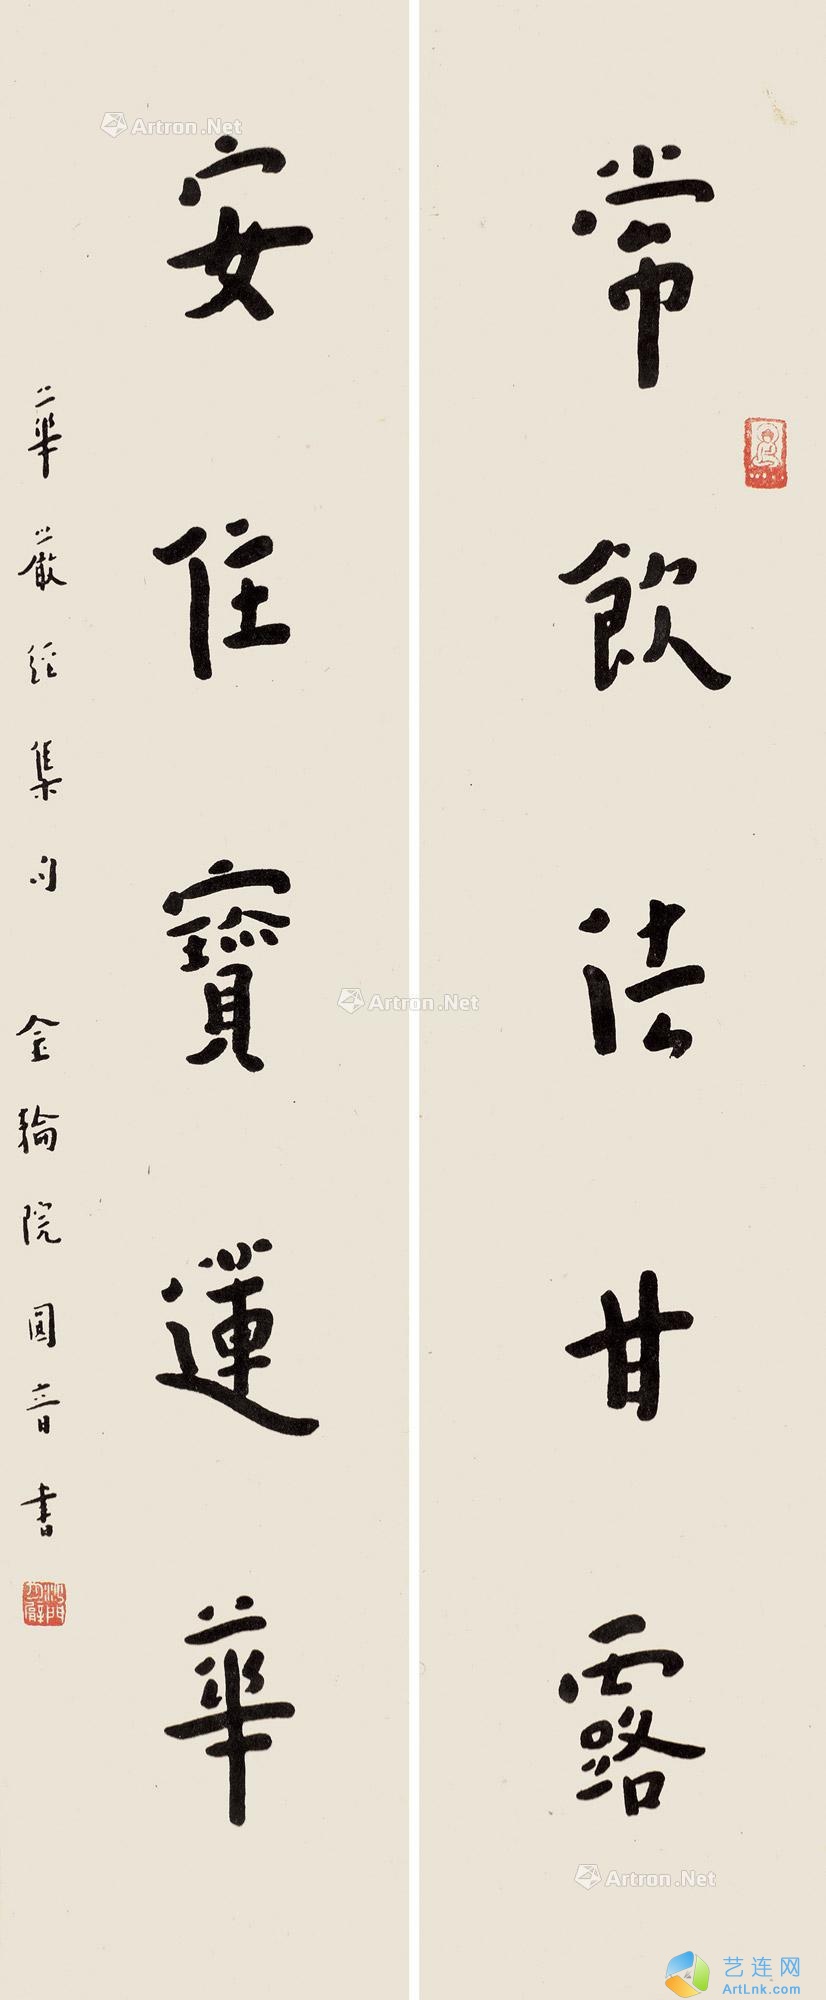 常飲法甘露
安住寶蓮華
華嚴經集句 金輪院圓音書
沙門
Artron.Net
Artron.Net
Artron.Net
艺连网
ArtLnk.com